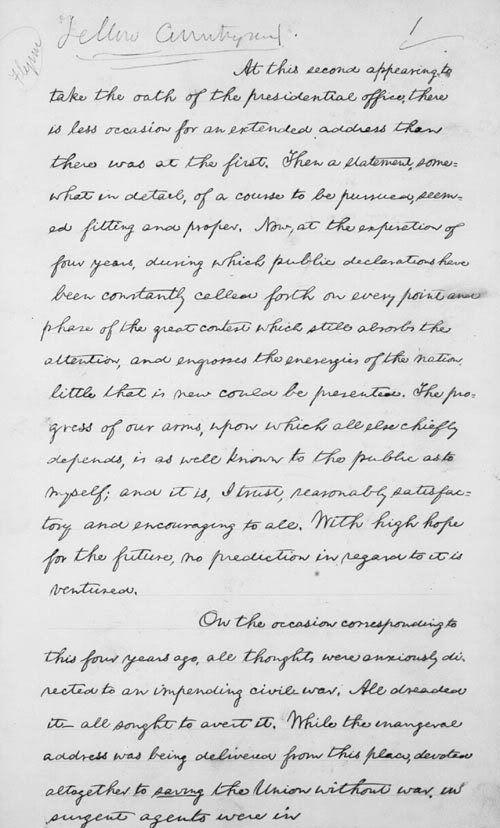 Fellow Countrymen.
1
At this second appearing to
take the oath of the presidential office, there
is less occasion for an extended address than
there was at the first. Then a statement, some=
what in detail, of a course to be pursued, seem=
ed fitting and proper. Now, at the expiration of
four years, during which public declarations have
been constantly called forth on every point and
phase of the great contest which still absorbs the
attention, and engrosses the enerergies of the nation,
little that is new could be presented. The pro=
gress of our arms, upon which all else chiefly
depends, is as well known to the public as to
myself; and it is, I trust, reasonably satisfac=
tory and encouraging to all. With high hope
for the future, no prediction in regard to it is
ventured.
On the occasion corresponding to
this four years ago, all thoughts were anxiously di-
rected to an impending civil war. All dreaded
it— all sought to avert it. While the inaugeral
address was being delivered from this place, devoted
altogether to saving the Union without war, in
surgent agents were in